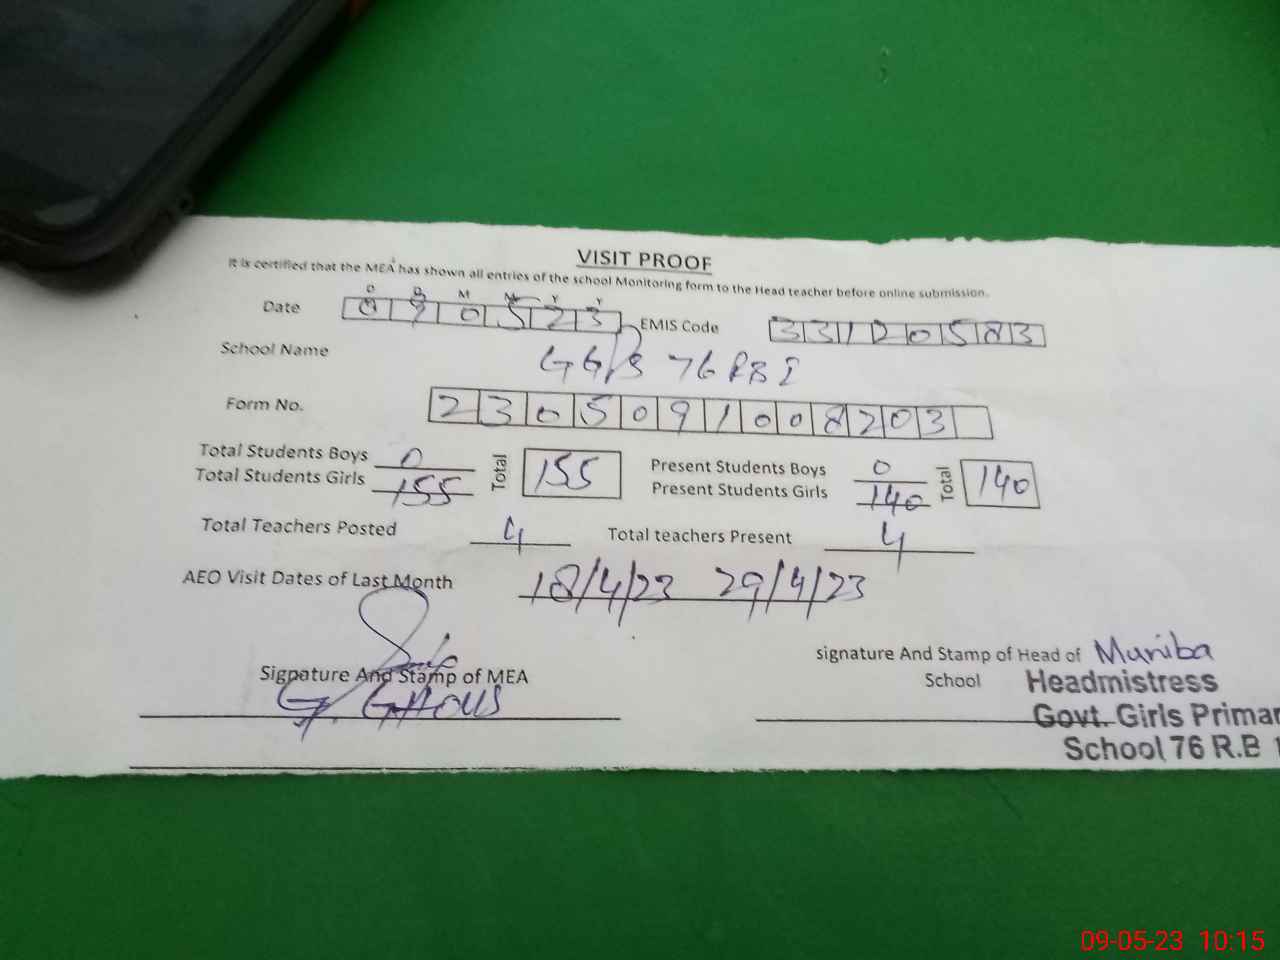 VISIT PROOF
It is certified that the MEA has shown all entries of the school Monitoring form to the Head teacher before online submission.
D D M M Y Y
Date 090523 EMIS Code 33120583
School Name GGPS 76 RB I
Form No. 2305091008203
Total Students Boys 0 Total 155 Present Students Boys 0 Total 140
Total Students Girls 155 Present Students Girls 140
Total Teachers Posted 4 Total teachers Present 4
AEO Visit Dates of Last Month 18/4/23 29/4/23
Signature And Stamp of MEA
G. GHOUS
signature And Stamp of Head of Muniba
School Headmistress
Govt. Girls Primar
School 76 R.B
09-05-23 10:15